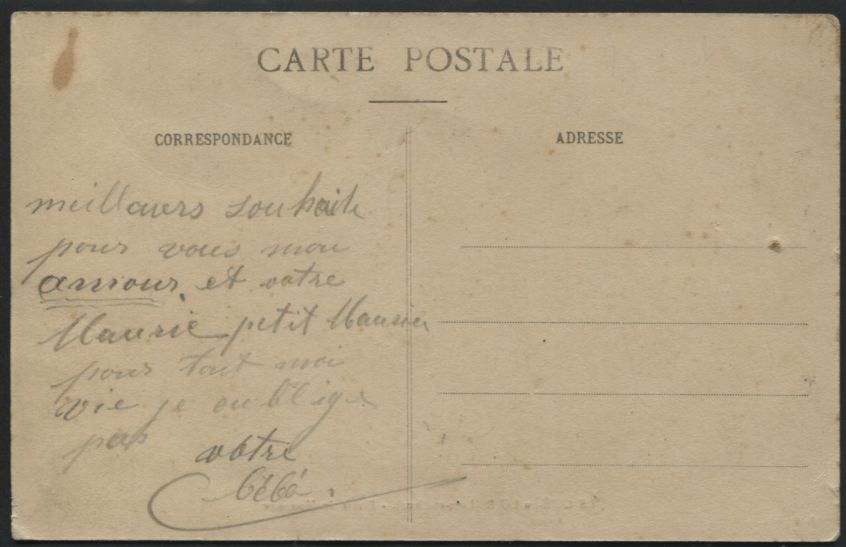 CARTE POSTALE
CORRESPONDANCE
ADRESSE
meillauers souhaite
pour vous mon
amour, et votre
Maurie petit Maurier
pour tout moi
vie je oublige
pas
votre
bébé.